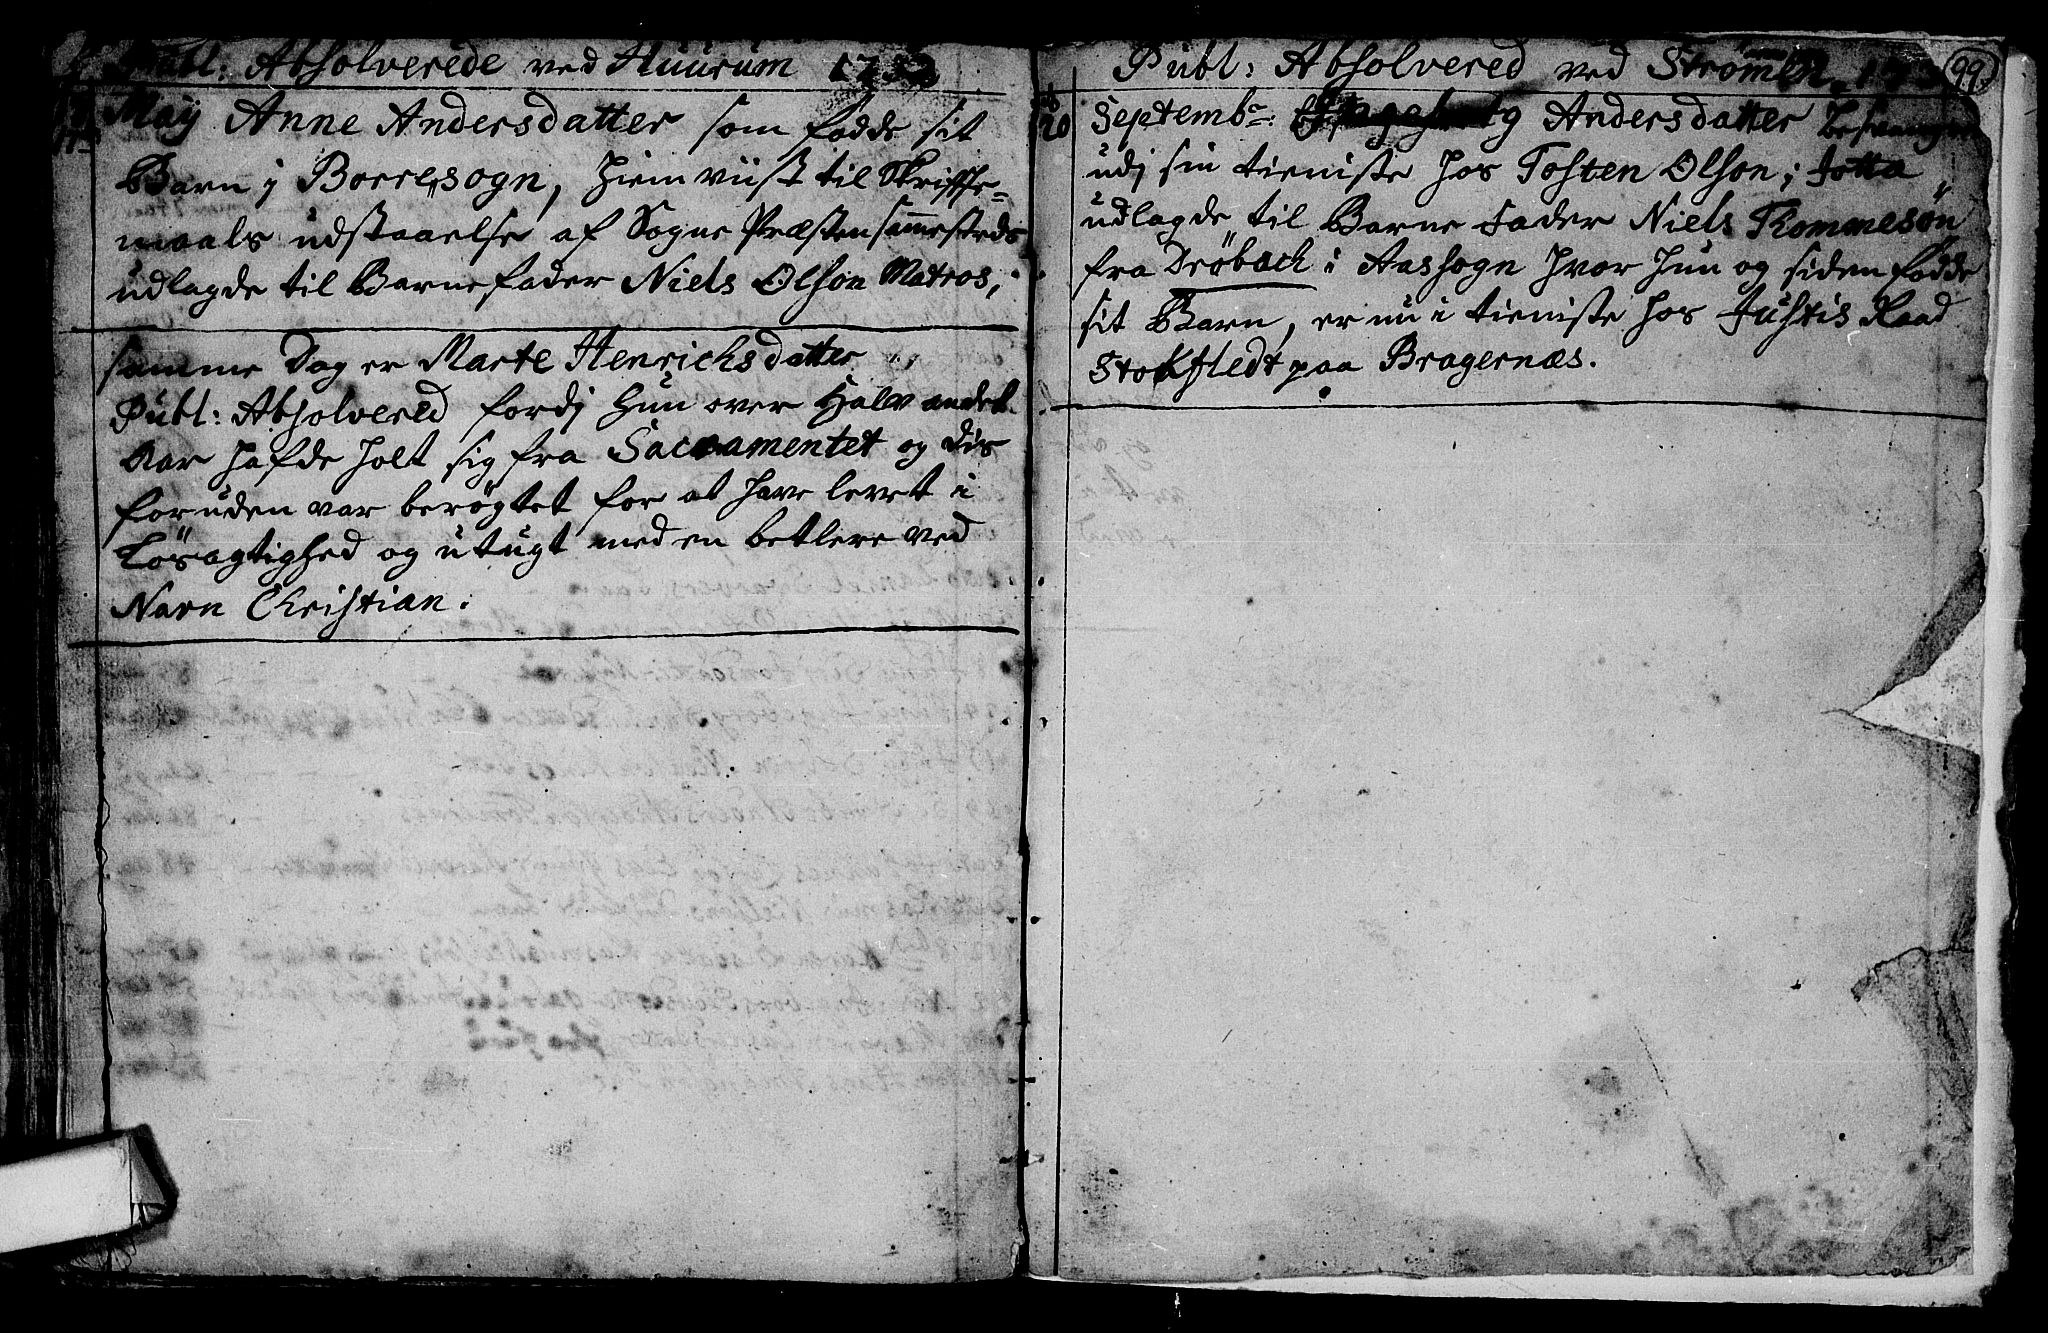 Publ: Absolverede ved Huurum 1732
17 May Anne Andersdatter som födde sit
Barn i Borresogn, hiemviist til Skriffte-
maals udstaaelse af Sogne Præsten sammesteds
udlagde til Barnefader Niels Olson Matros,
samme Dag er Marte Henrichsdatter
Publ: Absolvered fordj hun over Halv andet
Aar hafde holt sig fra Sacramentet og des
foruden var berögtet for at have levet i
Lösagtighed og utugt med en betlere ved
Navn Christian.
Publ: Absolvered ved Strömen. 173
99.
20 Septembr: Andersdatter besvangret
udj sin tieniste hos Tosten Olson i Totta
udlagde til Barne Fader Niels Tommesön
fra Dröbach i Aassogn hvor hun og siden födde
sit Barn, er nu i tieniste hos Justis Raad
Stokfledt paa Bragernæs.